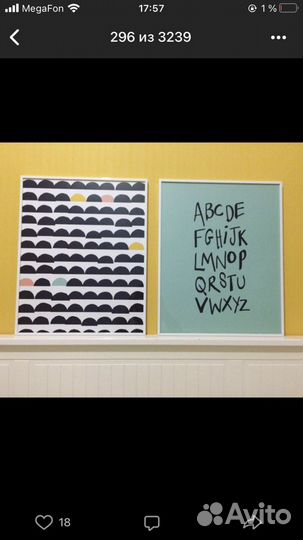 MegaFon
17:57
1 %
296 из 3239
ABCDE
FGHIJK
LMNOP
QRSTU
VWXYZ
18
Avito